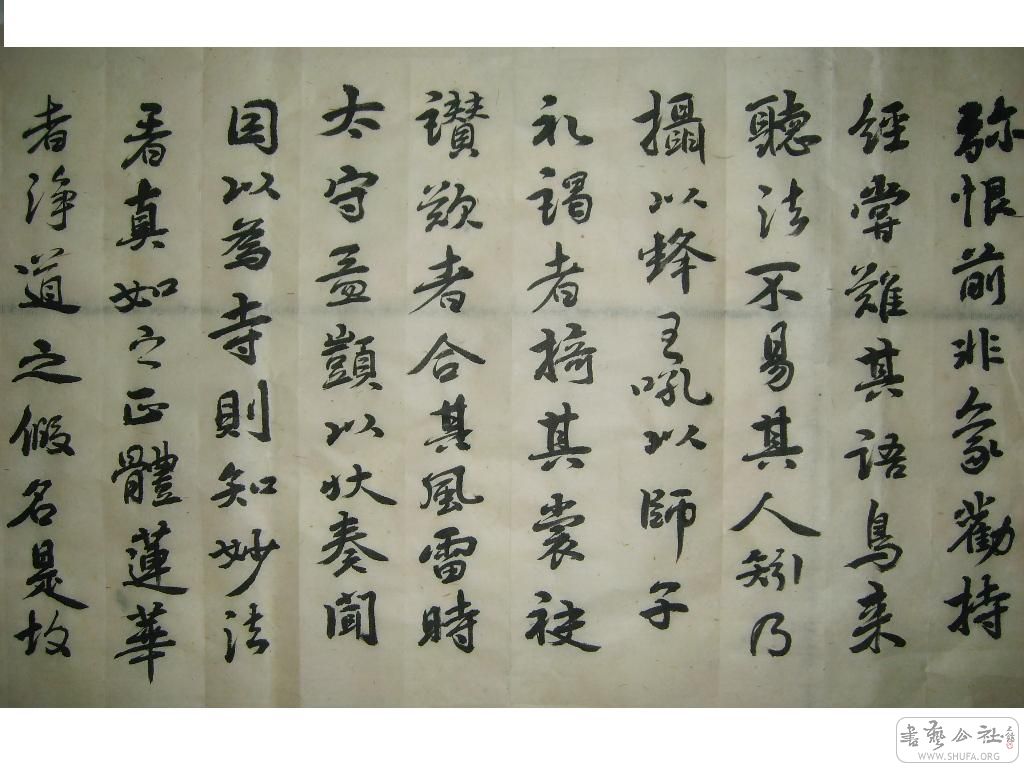 弥恨前非象勸持
經嘗難其語鳥来
聽法不易其人矧乃
攝以蜂王吼以師子
礼謁者掎其裳袂
讃歎者合其風雷時
太守孟顗以状奏聞
因以為寺則知妙法
者真如之正體蓮華
者淨道之假名是故
書藝公社
WWW.SHUFA.ORG